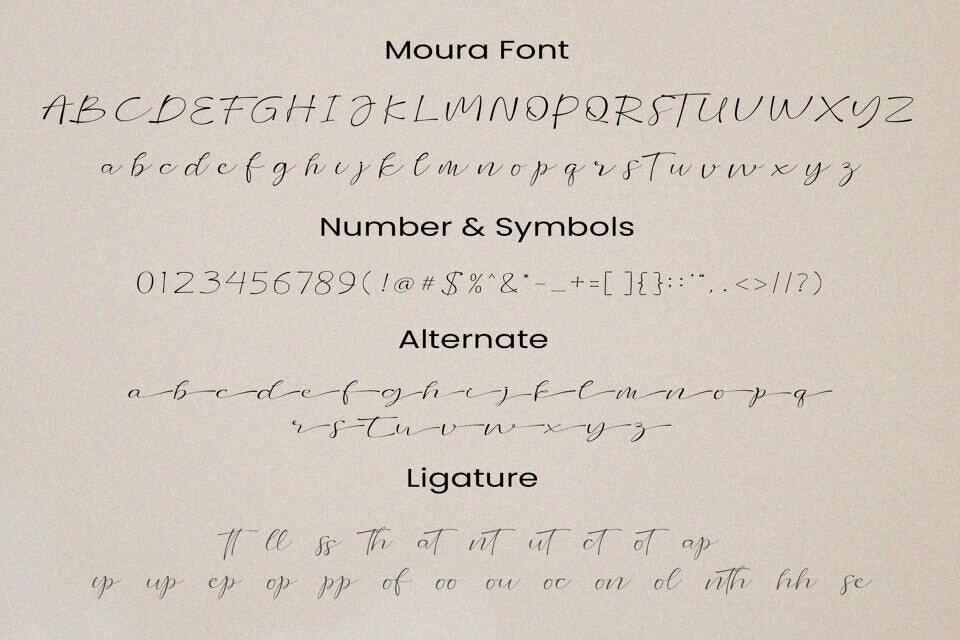 Moura Font
A B C D E F G H I J K L M N O P Q R S T U V W X Y Z
a b c d e f g h i j k l m n o p q r s t u v w x y z
Number & Symbols
0123456789(!@#$%^&*-_+=[ ]{}:;'",.<>//?)
Alternate
a b c d e f g h i j k l m n o p q
r s t u v w x y z
Ligature
tt ll ss th at nt ut ct ot ap
ip up ep op pp of oo ou oc on ol nth hh se